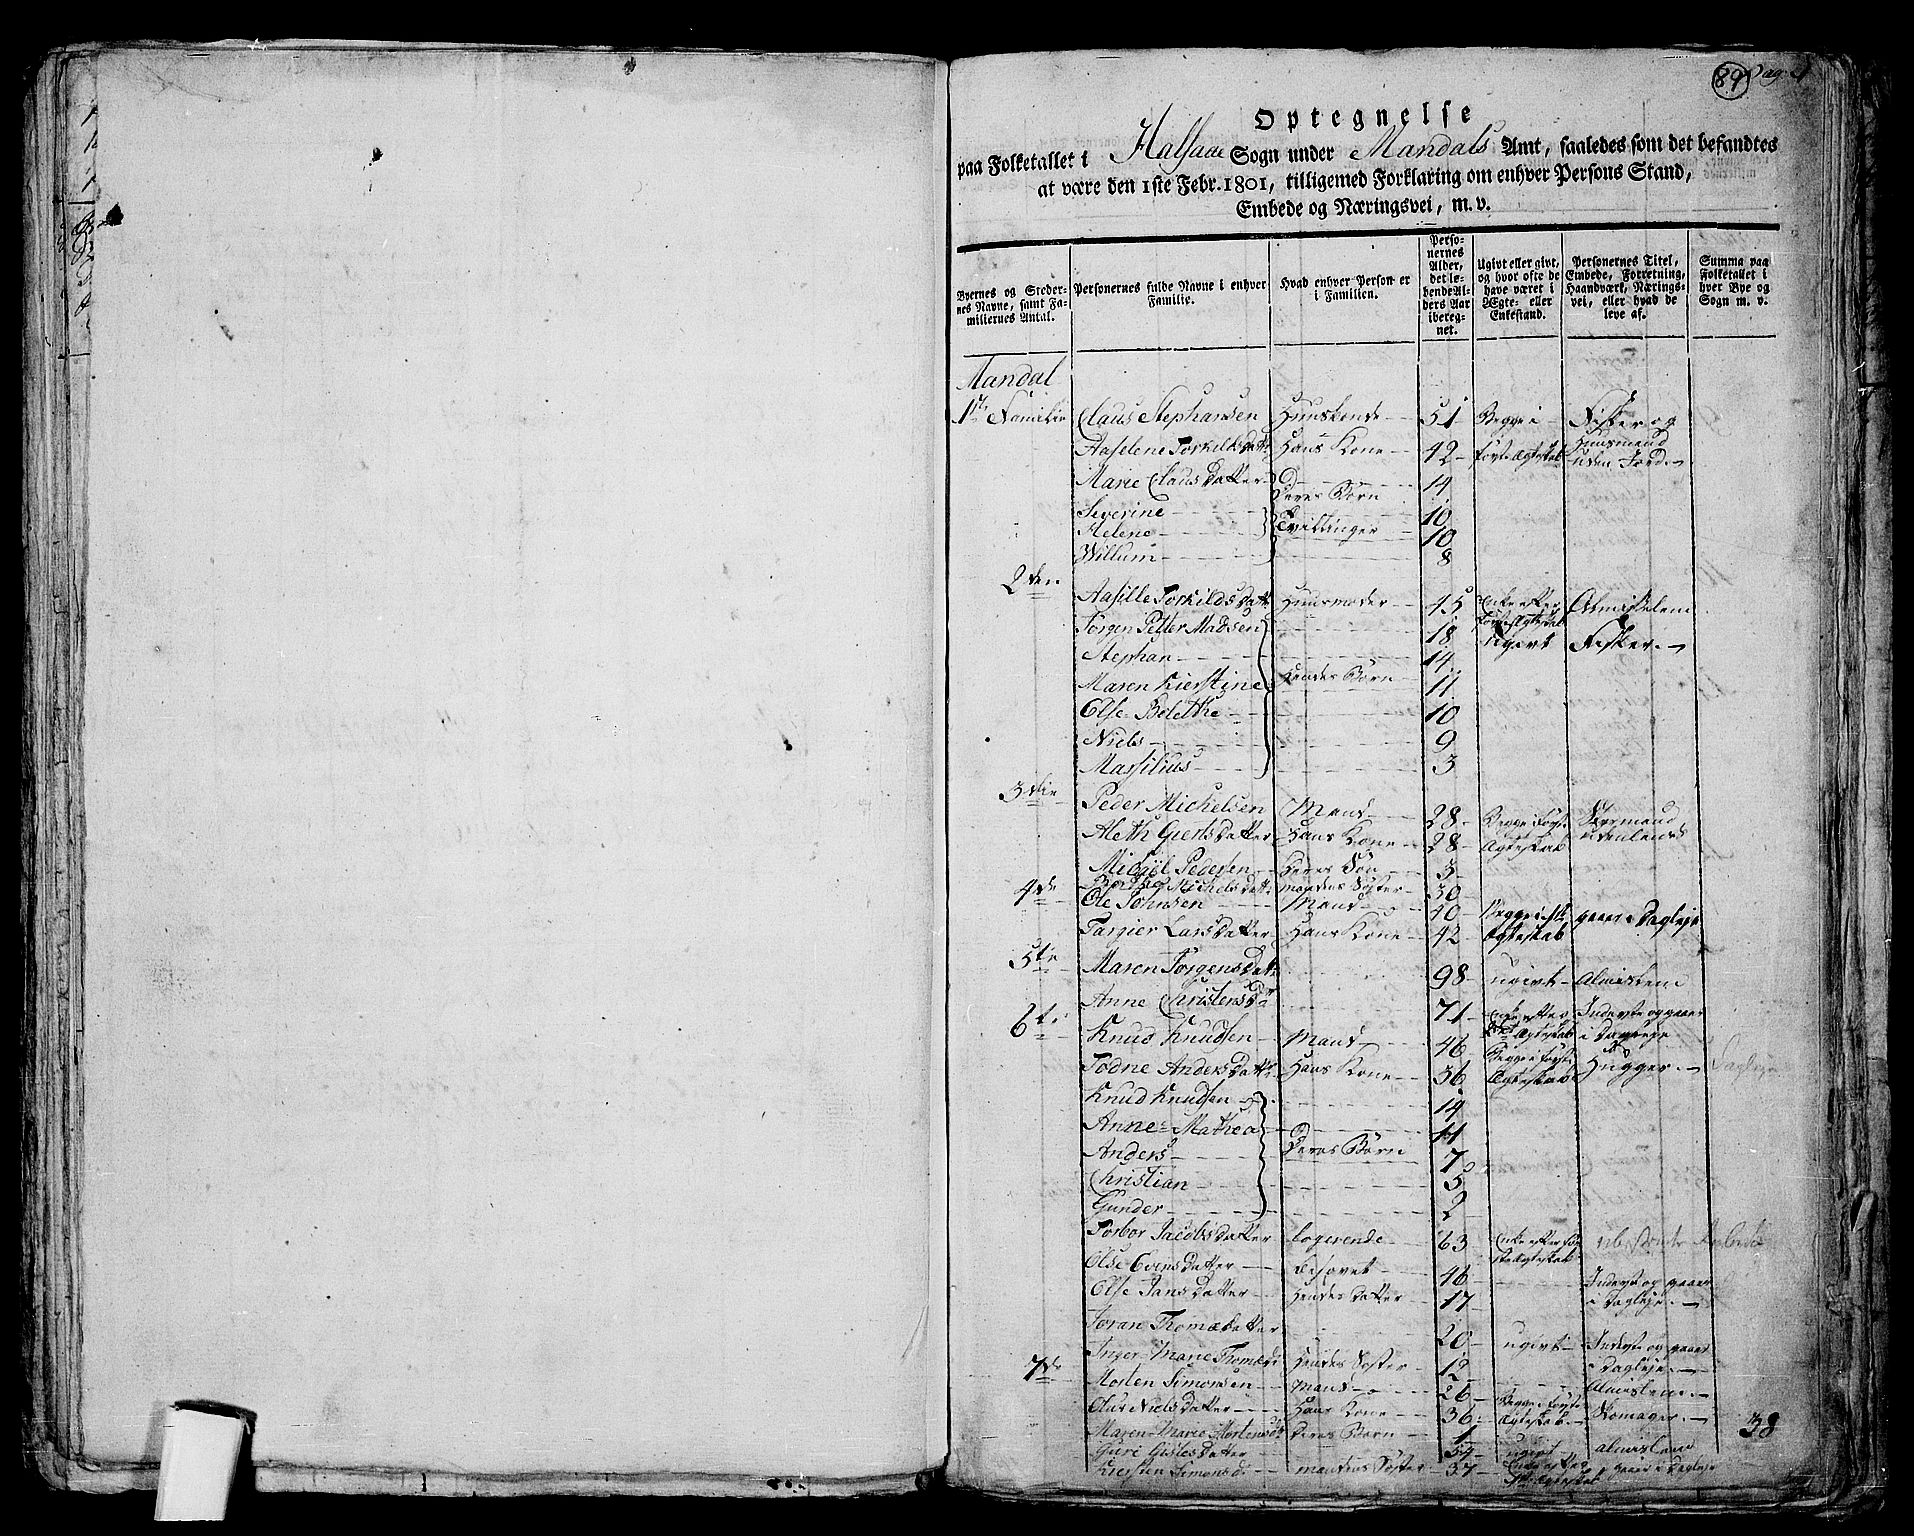 89 Pag. 1
Optegnelse
paa Folketallet i Halsaae Sogn under Mandals Amt, saaledes som det befandtes
at være den 1ste Febr. 1801, tilligemed Forklaring om enhver Persons Stand,
Embede og Næringsvei, m. v.
Byernes og Stedernes Navne, samt Familiernes Antal. | Personernes fulde Navne i enhver Familie. | Hvad enhver Person er i Familien. | Personernes Alder, det løbende Alders Aar iberegnet. | Ugivt eller givt, og hvor ofte de have været i Ægte- eller Enkestand. | Personernes Titel, Embede, Forretning, Haandværk, Næringsvei, eller hvad de leve af. | Summa paa Folketallet i hver Bye og Sogn m. v.
Mandal
1te Familie Claus Stephansen Huusbonde 51 Begge i Fisker og
Aaselene Torkildsdatt: Hans Kone 42 første Ægteskab Huusmand uden Jord
Marie Clausdatter Deres Børn 14
Severine 10
Helene Tvillinger 10
Willum 8
2den
Aasille Torkildsdatt: Huusmoder 45 Enke efter første Ægteskab Almisselem
Jørgen Petter Madsen 18 ugivt Fisker
Stephan 14
Maren Kierstine Hendes Børn 11
Else Bolethe 10
Niels 9
Massilius 3
3die
Peder Michelsen Mand 28 Begge i første Styrmand
Aleth Giertsdatter Hans Kone 28 Ægteskab udenlands
Michel Pedersen Deres Søn 3
Michelsdatt: mandens Søster 30
4de Ole Johnsen Mand 40 Begge i 1ste gaaer i Dagleje
Targier Larsdatter Hans Kone 42 Ægteskab
5te
Maren Jørgensdatt: 98 ugivt Almislem
Anne Christensdr 71 Enke efter Inderste og gaaer
6te Knud Knudsen Mand 46 Ægteskab i Dagleje
Todne Andersdatt: Hans Kone 36 Begge i første Ægteskab Hugger Dagleje
Knud Knudsen 14
Anne Mathea 11
Anders Deres Børn 7
Christian 5
Gunder 2
Torbor Jacobsdatter logerende 63 Enke efter første Ægteskab
Else Evensdatter besovet 46
Else Jansdatter Hendes datter 17 Inderste og gaaer i Dagleje
Joran Thomædatter 20 ugivt Inderste og gaaer
Inger Marie Thomæd: Hendes Søster 12 i Dagleje
7de Morten Simonsen Mand 26 Almislem
Nielsdatter Hans Kone 36 Begge i første Ægteskab Skomager
Maren Marie Mortensdr Deres Barn 1 38
Guri Gislesdatter 54 ugivt almislem
Kiersten Simonsdr mandens Søster 37 Enke efter gaaer i Dagleje
Ægteskab